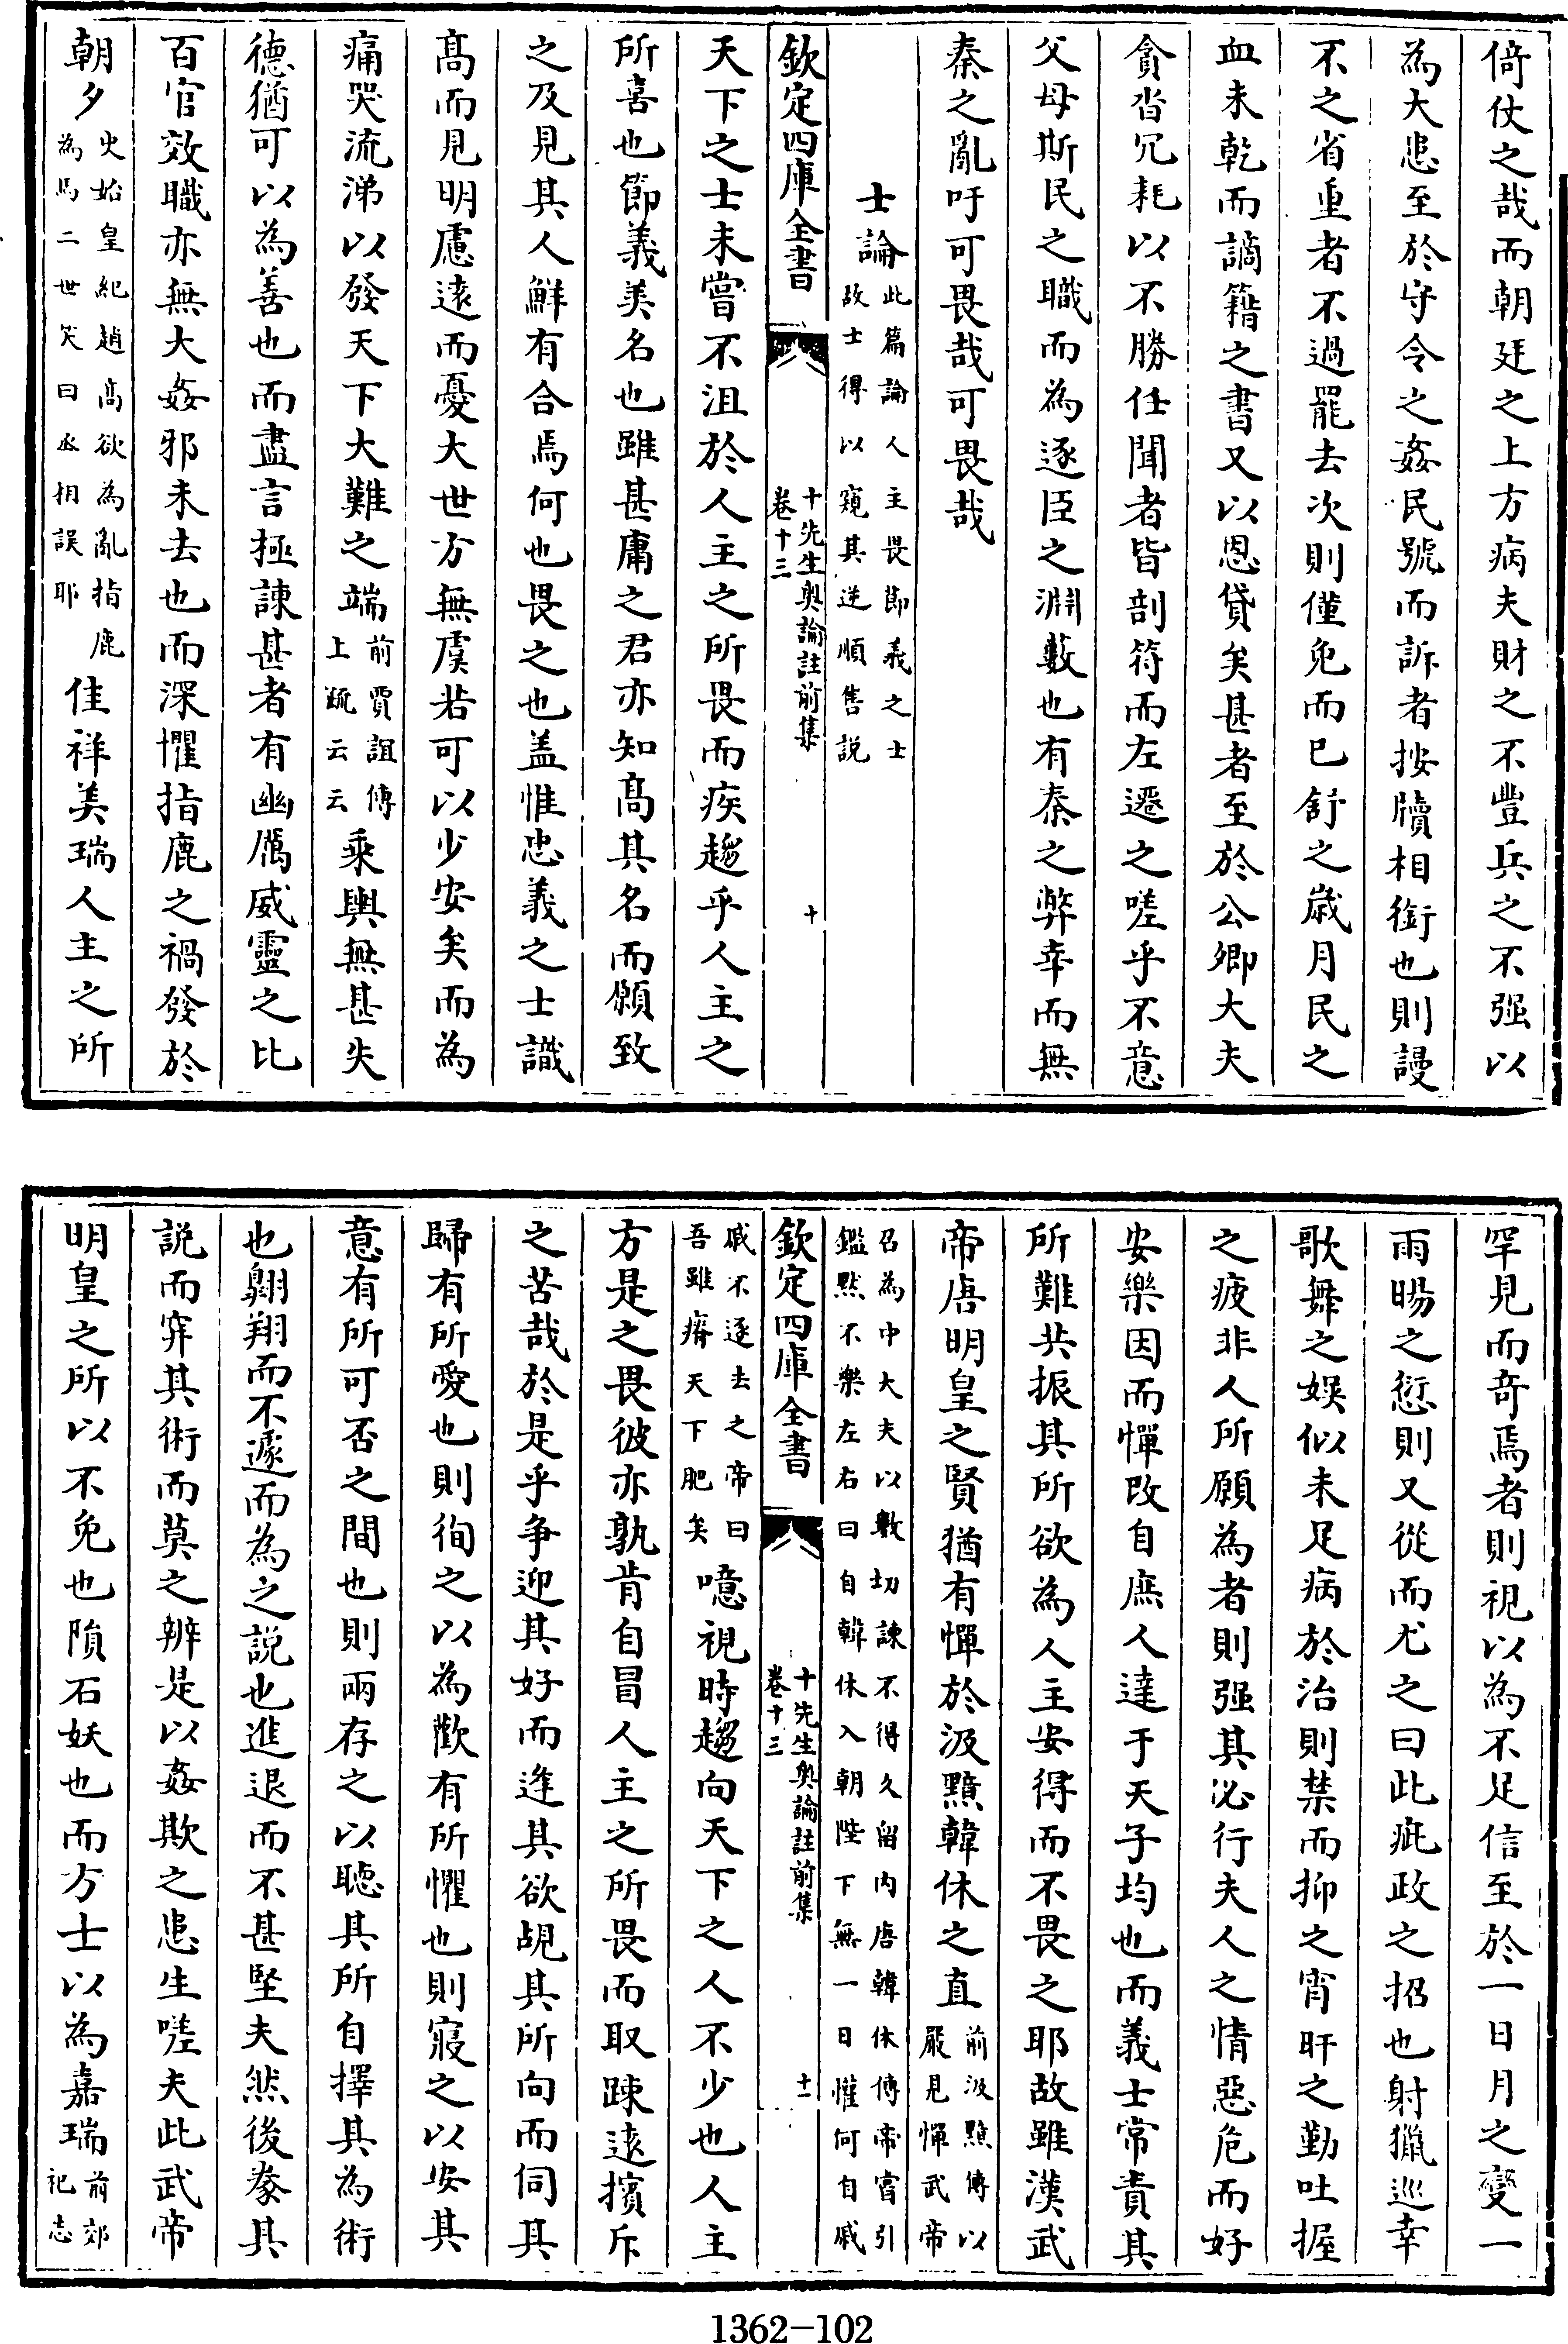 倚仗之哉而朝廷之上方病夫財之不豐兵之不强以
為大患至於守令之姦民號而訴者按牘相銜也則謾
不之省重者不過罷去次則僅免而已舒之歲月民之
血未乾而謫籍之書又以恩貸矣甚者至於公卿大夫
貪沓冗耗以不勝任聞者皆剖符而左遷之嗟乎不意
父母斯民之職而為逐臣之淵藪也有秦之弊幸而無
秦之亂吁可畏哉可畏哉
士論此篇論人主畏節義之士
故士得以窺其逆順售説
欽定四庫全書
十先生奥論註前集
卷十三
十
天下之士未嘗不沮於人主之所畏而疾趨乎人主之
所喜也節義美名也雖甚庸之君亦知高其名而願致
之及見其人鮮有合焉何也畏之也盖惟忠義之士識
高而見明慮遠而憂大世方無虞若可以少安矣而為
痛哭流涕以發天下大難之端前賈誼傳
上疏云云乘輿無甚失
德猶可以為善也而盡言極諫甚者有幽厲威靈之比
百官效職亦無大姦邪未去也而深懼指鹿之禍發於
朝夕史始皇紀趙高欲為亂指鹿
為馬二世笑曰丞相誤耶佳祥美瑞人主之所
罕見而奇焉者則視以為不足信至於一日月之變一
雨暘之愆則又從而尤之曰此疵政之招也射獵巡幸
歌舞之娱似未足病於治則禁而抑之宵旰之勤吐握
之疲非人所願為者則强其必行夫人之情惡危而好
安樂因而憚改自庶人達于天子均也而義士常責其
所難共振其所欲為人主安得而不畏之耶故雖漢武
帝唐明皇之賢猶有憚於汲黯韓休之直前汲黯傳以
嚴見憚武帝
召為中大夫以數切諫不得久留内唐韓休傳帝嘗引
鑑默不樂左右曰自韓休入朝陛下無一日懽何自戚
欽定四庫全書
十先生奥論註前集
卷十三
十一
戚不逐去之帝曰
吾雖瘠天下肥矣噫視時趨向天下之人不少也人主
方是之畏彼亦孰肯自冒人主之所畏而取踈遠擯斥
之苦哉於是乎争迎其好而逢其欲覘其所向而伺其
歸有所愛也則徇之以為歡有所懼也則寢之以安其
意有所可否之間也則兩存之以聽其所自擇其為術
也翱翔而不遽而為之説也進退而不甚堅夫然後豢其
説而穽其術而莫之辨是以姦欺之患生嗟夫此武帝
明皇之所以不免也隕石妖也而方士以為嘉瑞前郊
祀志
1362-102